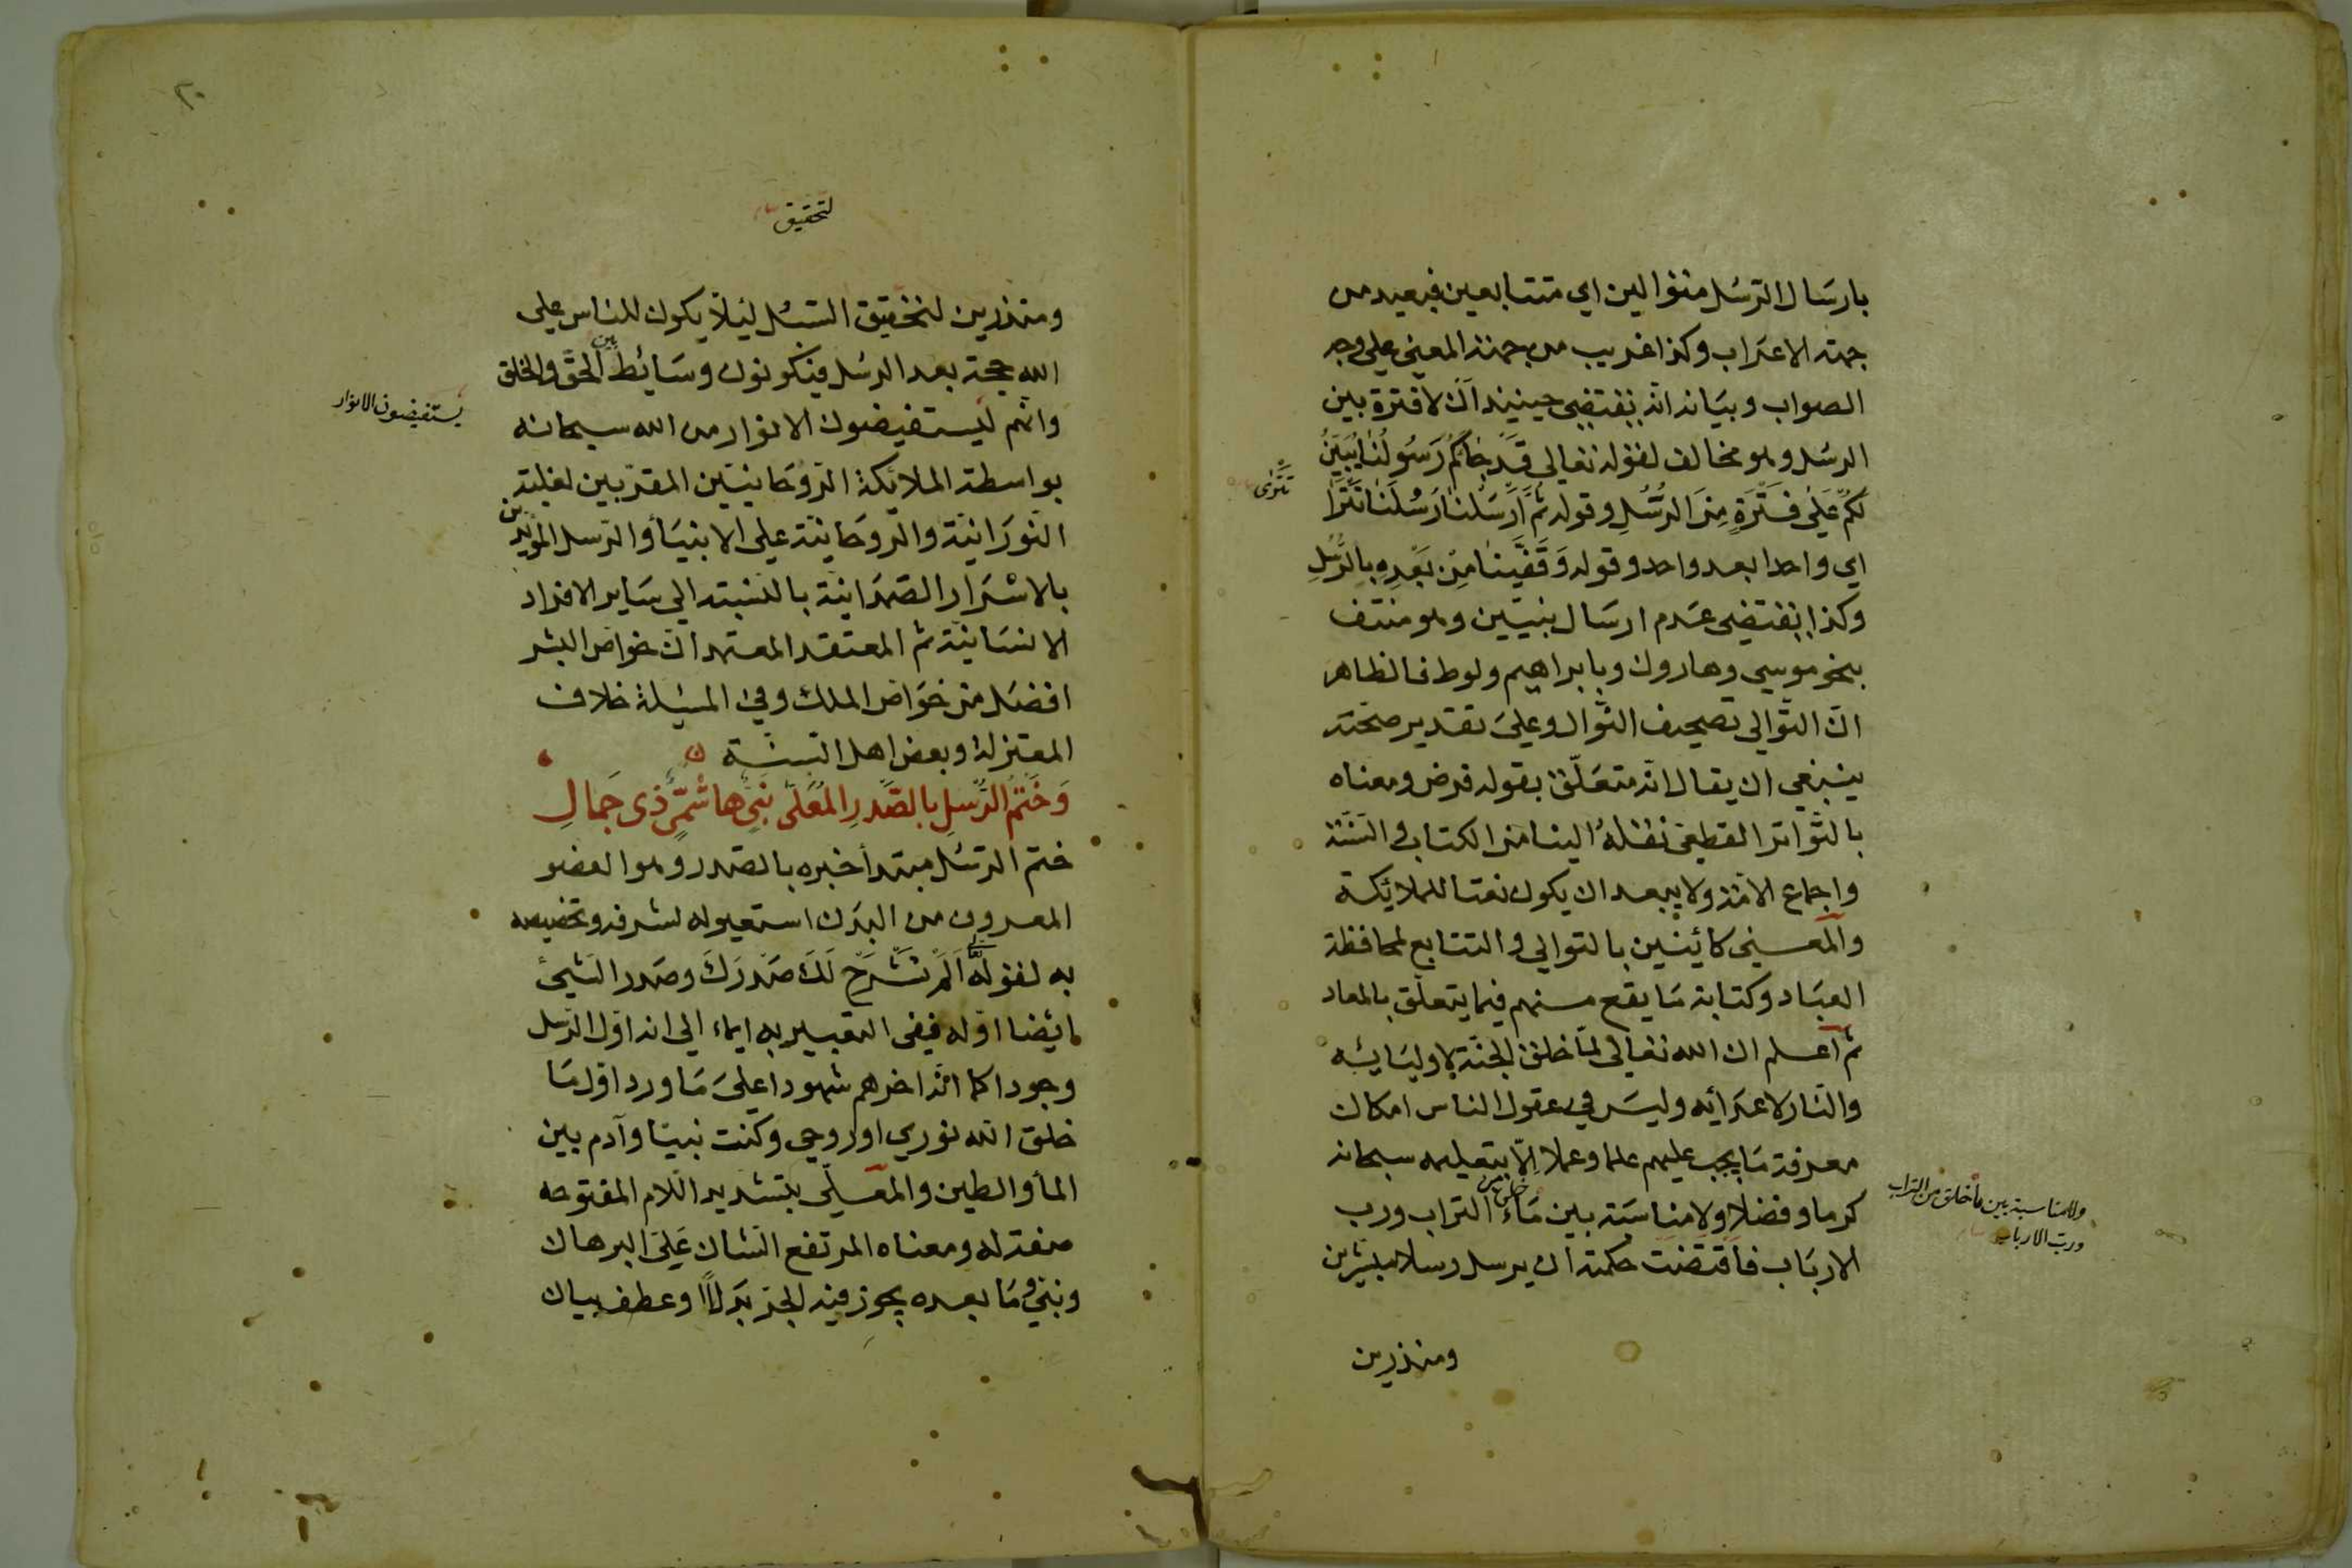 بارسال الرسل متوالين اي متتابعين فبعيد من
جهة الاعراب وكذا غريب من جهة المعنى على وجه
الصواب وبيانه انه يقتضي حينئذ ان لا فترة بين
الرسل وهو مخالف لقوله تعالى قَدْ جَاءَكُمْ رَسُولُنَا يُبَيِّنُ
لَكُمْ عَلَى فَتْرَةٍ مِنَ الرُّسُلِ وقوله ثُمَّ اَرْسَلْنَا رُسُلَنَا تَتْرَا
تَتْرٰى
اي واحدا بعد واحد وقوله وَقَفَّيْنَا مِنْ بَعْدِهِ بِالرُّسُلِ
وكذا يقتضي عدم ارسال نبيين وهو منتف
بنحو موسى وهارون وبابراهيم ولوط فالظاهر
ان التوالي تصحيف النوال وعلى تقدير صحته
ينبغي ان يقال انه متعلق بقوله فرض ومعناه
بالتواتر القطعي نقله الينا من الكتاب والسنة
واجماع الامة ولا يبعد ان يكون نعتا للملائكة
والمعنى كائنين بالتوالي والتتابع لمحافظة
العباد وكتابة ما يقع منهم فيما يتعلق بالمعاد
ثم اعلم ان الله تعالى لما خلق الجنة لاوليائه
والنار لاعدائه وليس في عقول الناس امكان
معرفة ما يجب عليهم علما وعملا الا بتعليمه سبحانه
كرما وفضلا ولا مناسبة بين ماء خلق من التراب ورب
ولا مناسبة بين ما خلق من التراب
ورب الارباب
الارباب فاقتضت حكمته ان يرسل رسلا مبشرين
ومنذرين
٢٠
لتحقيق
ومنذرين لتحقيق السبل ليلا يكون للناس على
الله حجة بعد الرسل فيكونون وسائط بين الحق والخلق
وانهم ليستفيضون الانوار من الله سبحانه
يستفيضون الانوار
بواسطة الملائكة الروحانيين المقربين لغلبة
النورانية والروحانية على الانبياء والرسل المؤيدين
بالاسرار الصمدانية بالنسبة الى ساير الافراد
الانسانية ثم المعتقد المعتمد ان خواص البشر
افضل من خواص الملك وفي المسئلة خلاف
المعتزلة وبعض اهل السنة
وَخَتْمُ الرُّسْلِ بِالصَّدْرِ الْمُعَلَّى نَبِيٍّ هَاشِمِيٍّ ذِى جَمَالِ
ختم الرسل مبتدأ خبره بالصدر وهو العضو
المعروف من البدن استعير له لشرفه وتخصيصه
به لقوله اَلَمْ نَشْرَحْ لَكَ صَدْرَكَ وصدر الشيء
ايضا اوله ففي التعبير به ايماء الى انه اول الرسل
وجودا كما انه اخرهم شهودا على ما ورد اول ما
خلق الله نوري او روحي وكنت نبيا وآدم بين
الماء والطين والمعلى بتشديد اللام المفتوحة
صفة له ومعناه المرتفع الشان على البرهان
ونبي وما بعده يجوز فيه الجر بدلا وعطف بيان